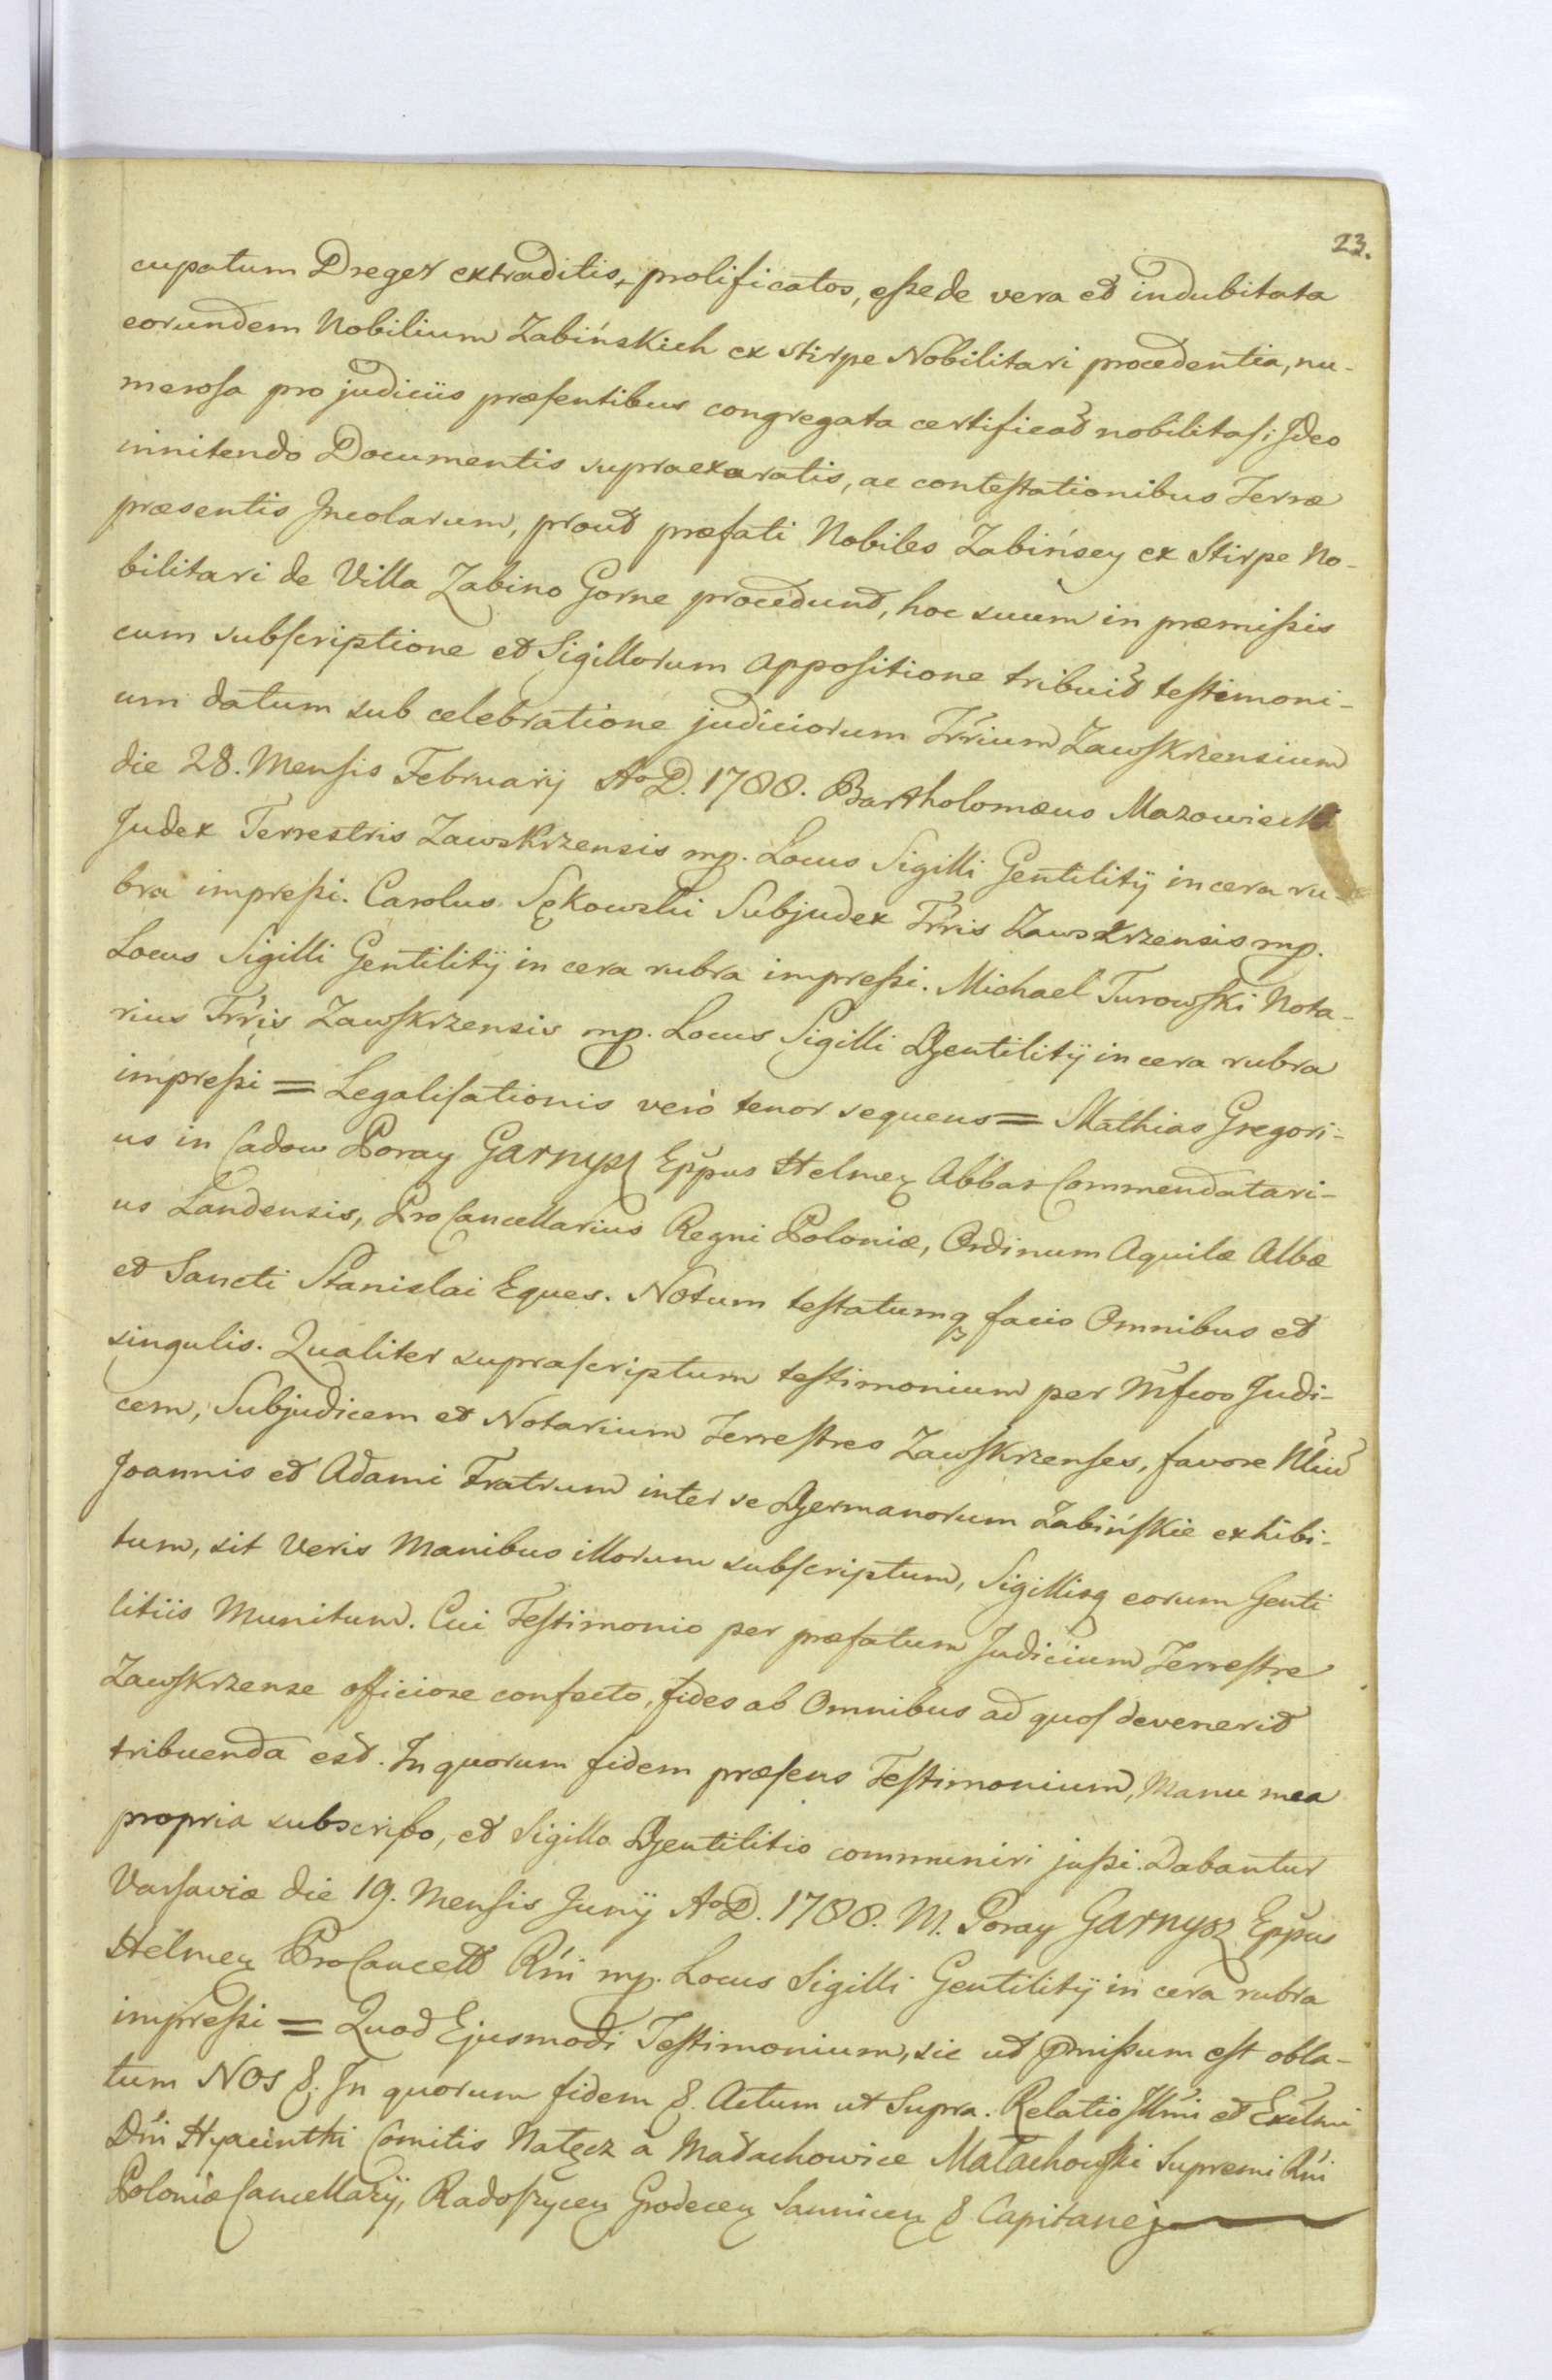 23.
cupatum Dreger extraditis, prolificatos, eſse de vera et indubitata
eorundem Nobilium Zabińskich ex stirpe Nobilitari procedentia, nu-
meroſa pro judiciis præſentibus congregata certificat nobilitaſ; Ideo
innitendo Documentis supraexaratis, ac conteſtationibus Terræ
præsentis Incolarum, prout præfati Nobiles Zabińscy ex Stirpe No-
bilitari de Villa Zabino Gorne procedunt, hoc suum in præmiſsis
cum subſcriptione et Sigillorum appoſitione tribuit teſtimoni-
um datum sub celebratione judiciorum Trrium Zawſkrzensium
die 28. Menſis Februarij Aº D. 1788. Bartholomæus Mazowiecki
Judex Terrestris Zawskrzensis mp. Locus Sigilli Gentilitij in cera ru-
bra impreſsi. Carolus Sękowski Subjudex Trris Zawskrzensis mp.
Locus Sigilli Gentilitij in cera rubra impreſsi. Michael Turowſki Nota-
rius Trris Zawſkrzensis mp. Locus Sigilli Gentilitij in cera rubra
impreſsi = Legaliſationis verò tenor sequens = Mathias Gregori-
us in Cadow Poray Garnysz Eppus Helmeñ Abbas Commendatari-
us Landensis, ProCancellarius Regni Poloniæ, Ordinum Aquilæ Albæ
et Sancti Stanislai Eques. Notum teſtatumq facio Omnibus et
singulis. Qualiter supraſcriptum teſtimonium per Mfcos Judi-
cem, Subjudicem et Notarium Terreſtres Zawſkrzenſes, favore Nliu
Joannis et Adami Fratrum inter se Germanorum Zabińſkie exhibi-
tum, sit Veris Manibus illorum subſcriptum, Sigillisq eorum Genti
litiis Munitum. Cui Teſtimonio per præfatum Judicium Terreſtre
Zawſkrzense officiose confecto, fides ab Omnibus ad quoſ devenerit
tribuenda est. In quorum fidem præſens Teſtimonium, Manu mea
propria subscribo, et Sigillo Gentilitio communiri juſsi. Dabantur
Varſaviæ die 19. Menſis Junij Aº D. 1788. M. Poray Garnysz Eppus
Helmeñ ProCancell Rni mp. Locus Sigilli Gentilitij in cera rubra
impreſsi = Quod Ejusmodi Teſtimonium, sic ut pmiſsum eſt obla-
tum NOS &. In quorum fidem &. Actum ut Supra. Relatio Illmi et Excelmi
Dni Hyacinthi Comitis Nałęcz a Małachowice Małachowſki Supremi Rni
Poloniæ Cancellarij, Radoſzyceñ Grodeceñ Sanniceñ & Capitanej